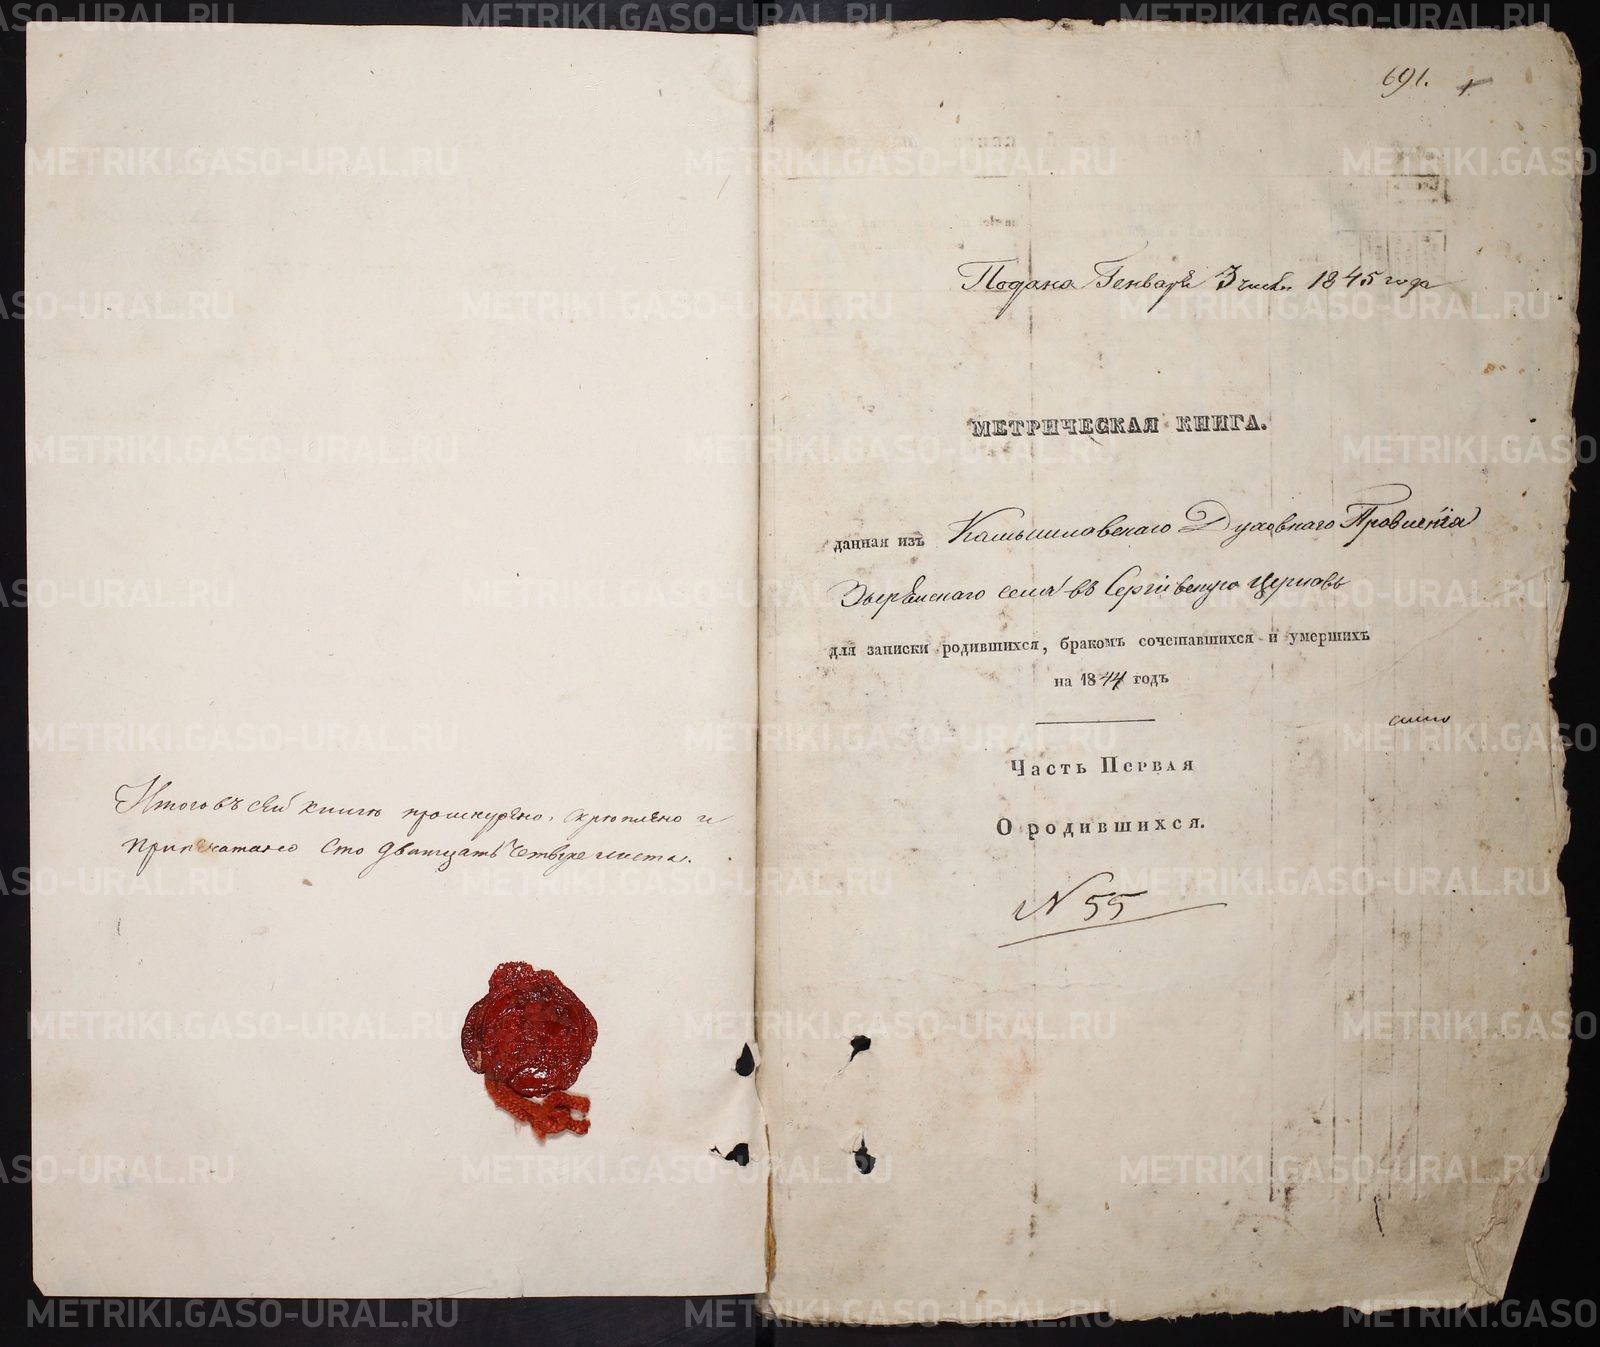 Итого въ сей книгѣ прошнурено, скрѣплено и
припечатано сто дватцать четыре листа.
691.
Подана Генваря 3 числа 1845 года
МЕТРИЧЕСКАЯ КНИГА.
данная изъ Камышловскаго Духовнаго Правленія
Звѣринскаго села въ Сергіевскую церковь
для записки родившихся, бракомъ сочетавшихся и умершихъ
на 1844 годъ
Часть Первая
О родившихся.
N 55
METRIKI.GASO-URAL.RU